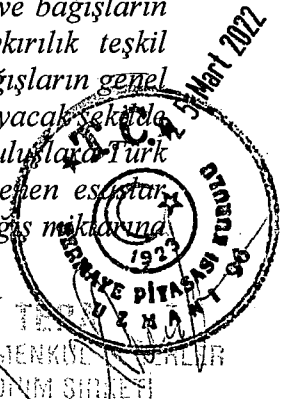 ve bağışların
kırılık teşkil
ğışların genel
yacak şekilde
uluşlara Türk
enen esaslar
ğış miktarına
25 Mart 2022
T.C.
SERMAYE PİYASASI KURULU
1923
UZMANI 96
MENKUL